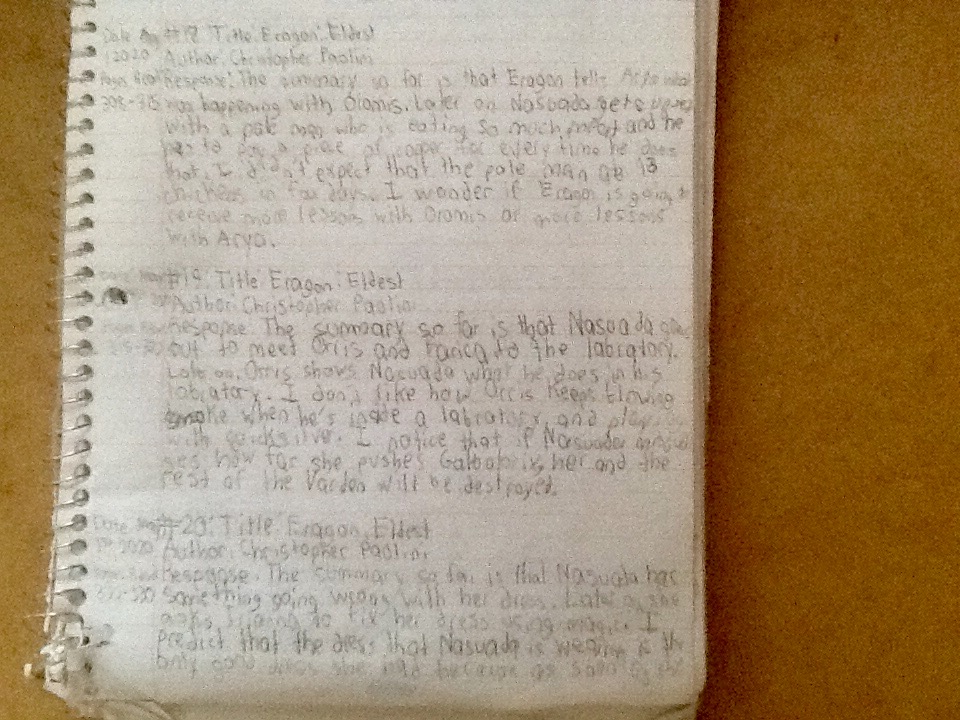 Date #18 Title: Eragon: Eldest
2020 Author: Christopher Paolini
Pages Read Response: The summary so far is that Eragon tells Arya what
308-315 was happening with Oromis. Later on Nasuada gets
with a pale man who is eating so much and he
has to a piece of paper for every time he does
that. I didn't expect that the pale man 13
chickens in four days. I wonder if Eragon is going to
receive more lessons with Oromis or more lessons
with Arya.
#19: Title Eragon: Eldest
Author: Christopher Paolini
Response: The summary so far is that Nasuada
out to meet Orris and to the labratory.
Later on, Orris shows Nasuada what he does in his
labratory. I don't like how Orris keeps
smoke when he's inside a labratory, and
with quicksilver. I notice that if Nasuada
how far she pushes her and the
rest of the Varden will be destroyed.
Date #20: Title: Eragon: Eldest
2020 Author: Christopher Paolini
Response: The summary so far is that Nasuada has
something going wrong with her dress. Later on she
trying to fix her dress using magic. I
predict that the dress that Nasuada is wearing is the
only good dress she had because as soon as she